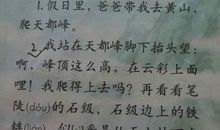 1.假日里，爸爸带我去黄山，
爬天都峰。
2.我站在天都峰脚下抬头望：
啊，峰顶这么高，在云彩上面
哩！我爬得上去吗？再看看笔
陡(dǒu)的石级，石级边上的铁
链(liàn)